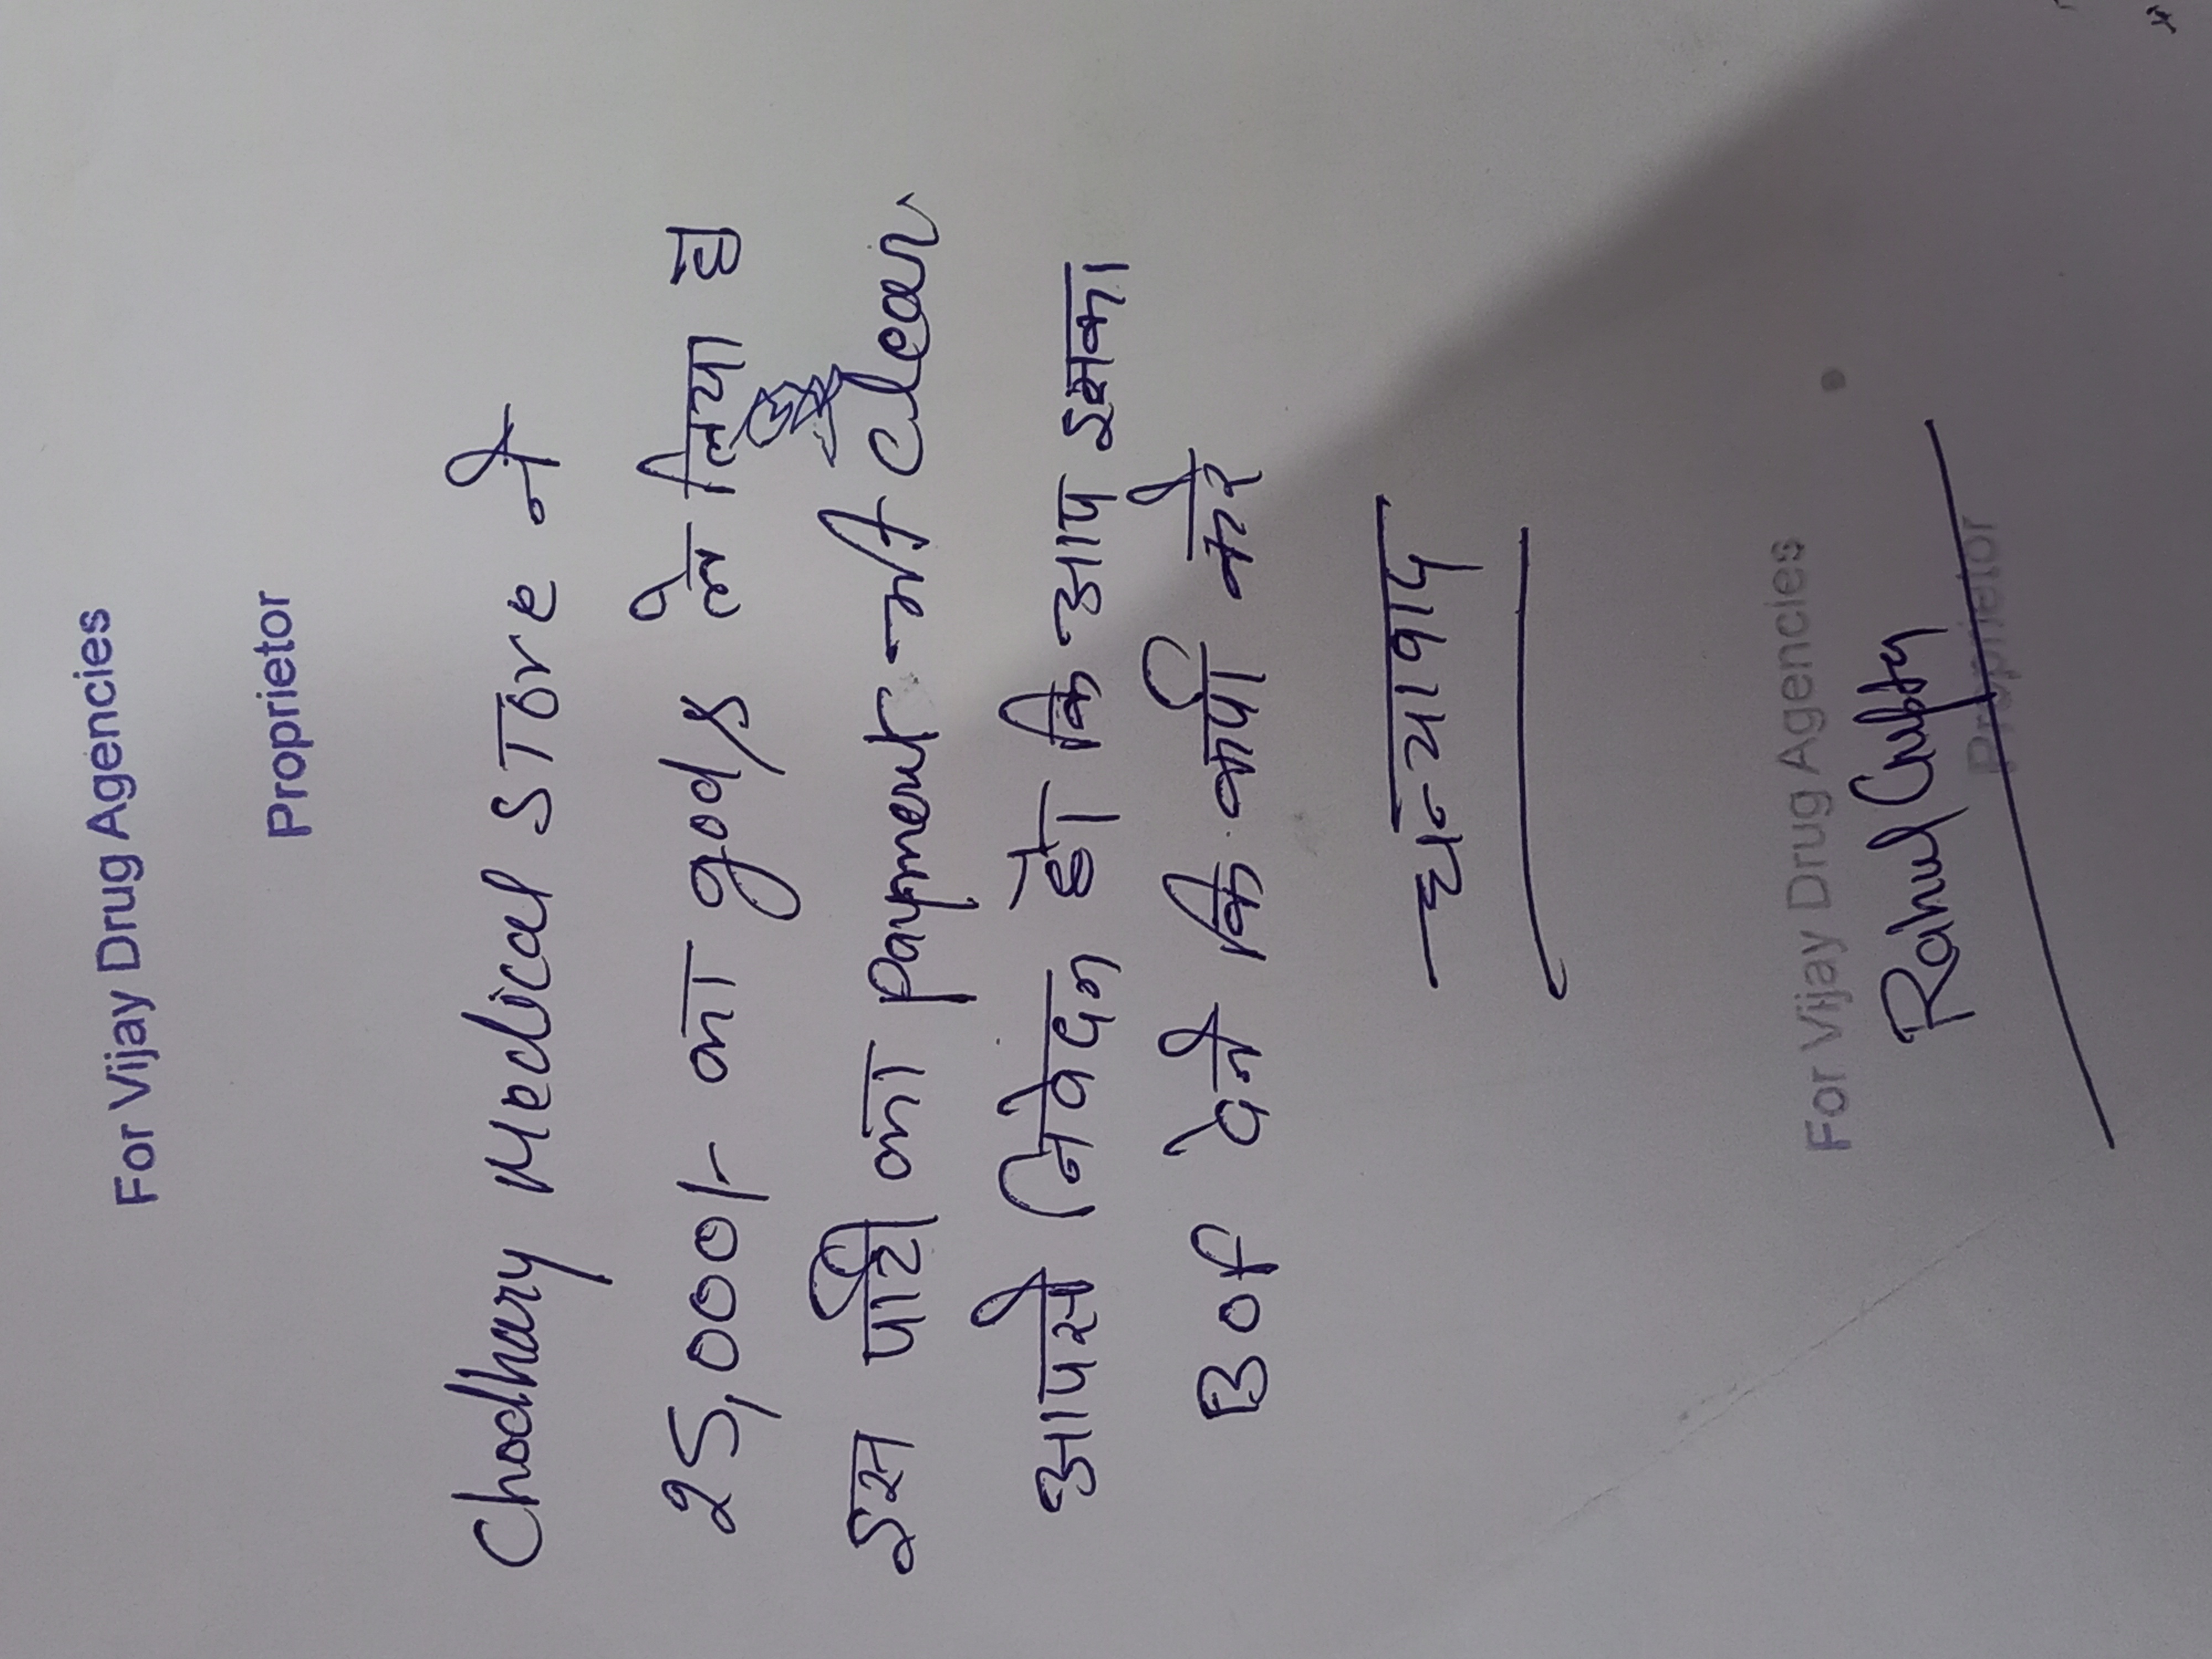 For Vijay Drug Agencies
Proprietor
Chodhary Medical STore ने
25,000/- का goods ले लिया है
इस पार्टी का Payment भी clear
आपसे निवेदन है कि आप इसका
BOP देने कि कृपा करे
धन्यावाद
For Vijay Drug Agencies
Rahul Gupta
Proprietor